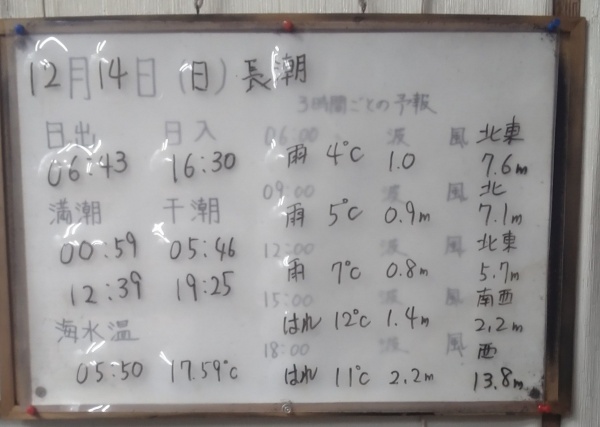 12月14日(日)長潮
3時間ごとの予報
日出 日入
06:43 16:30
満潮 干潮
00:59 05:46
12:39 19:25
海水温
05:50 17.59℃
06:00 波 風 北東
雨 4℃ 1.0 7.6m
09:00 波 風 北
雨 5℃ 0.9m 7.1m
12:00 波 風 北東
雨 7℃ 0.8m 5.7m
15:00 波 風 南西
はれ 12℃ 1.4m 2.2m
18:00 波 風 西
はれ 11℃ 2.2m 13.8m